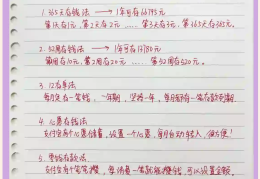 1. 365天存钱法 → 1年可存66795元
第1天存1元，第2天存2元 …… 第3天存3元，第365天存365元。
2. 52周存钱法 → 1年可存13780元
第1周存10元，第2周存20元 …… 第52周存520元。
3. 12存单法
每月定存一笔钱，一年期，坚持一年，每月都有一笔存款到期
4. 心愿存钱法
支付宝有个心愿储蓄，设置一个心愿，每月自动转入，很方便！
5. 零钱存款法
支付宝有个笔笔攒，每消费一笔就能攒钱，可以设置金额。